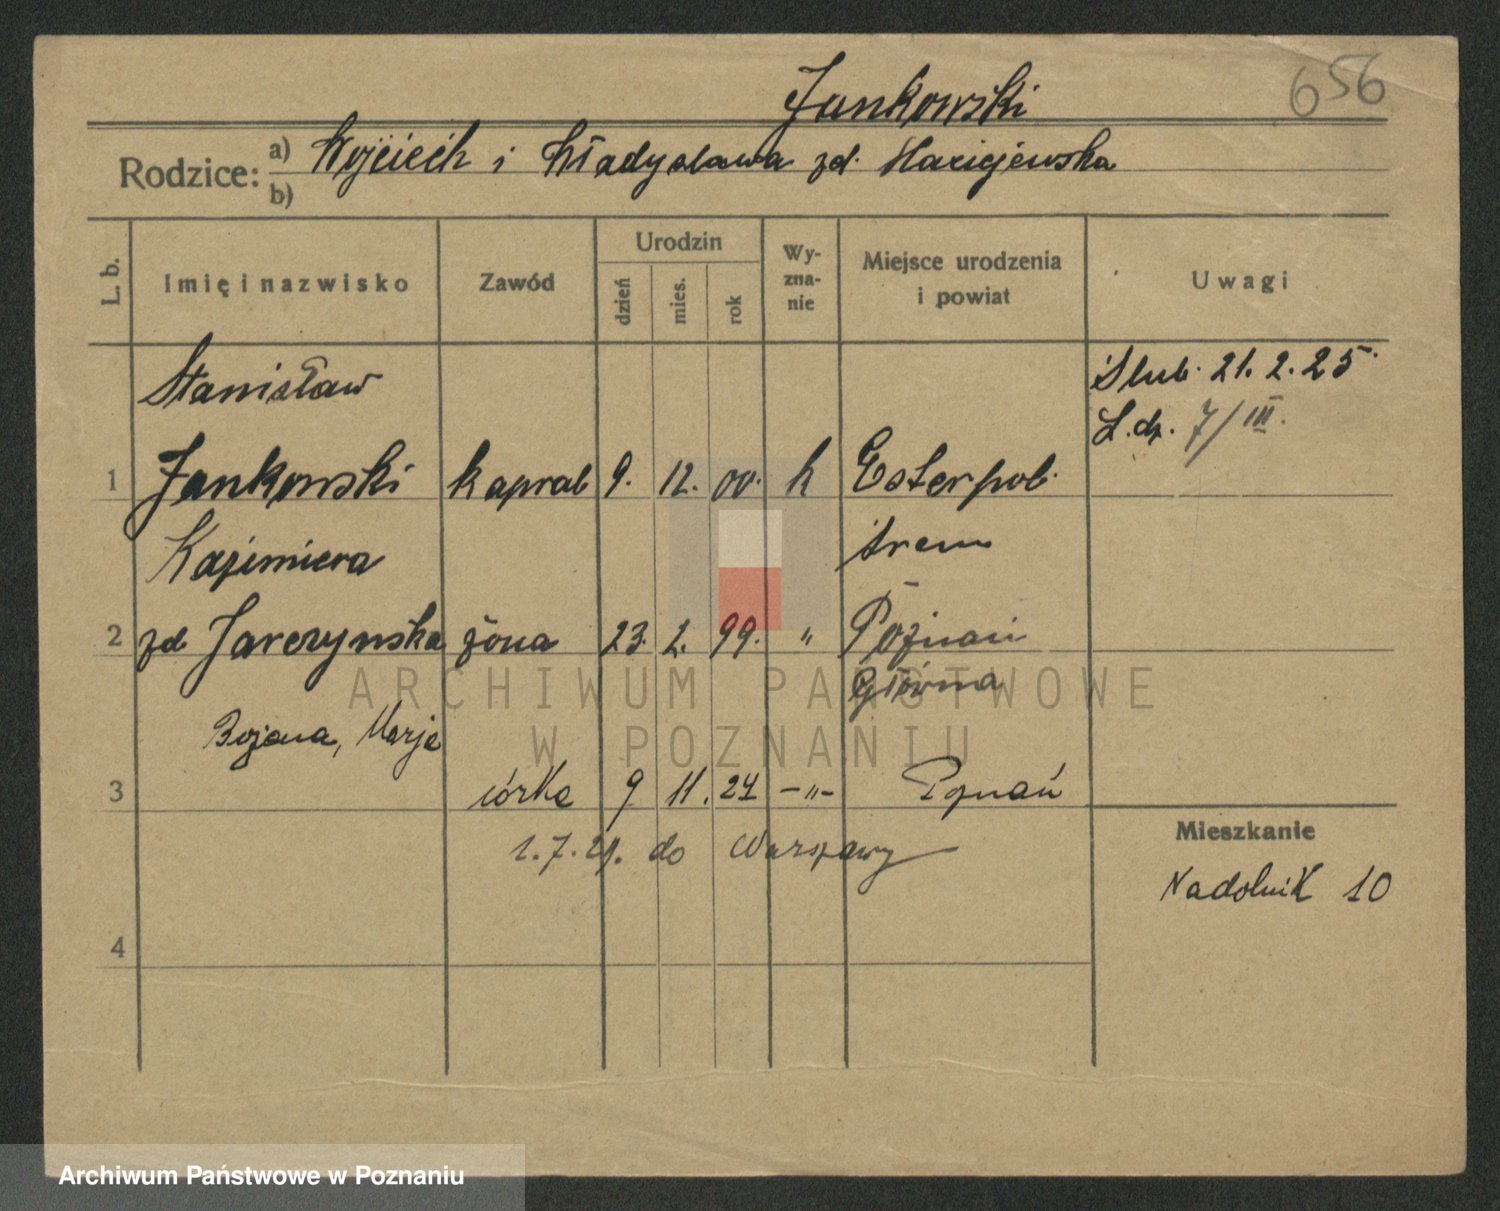 Jankowski
656
Rodzice: a) Wojciech i Władysława zd. Maciejewska
b)
L. b.
Imię i nazwisko
Zawód
Urodzin
dzień
mies.
rok
Wy-
zna-
nie
Miejsce urodzenia
i powiat
Uwagi
Stanisław
Ślub. 21. 2. 25.
L. dz. 7/III.
1 Jankowski kapral 9. 12. 00. k Esterpol.
Kazimiera Śrem
2 zd Jarczynska żona 23. 2. 99. " Poznań
Główna
Bożena, Marja
3 córka 9 11. 24 -"- Poznań
1. 7. 29. do Warszawy
Mieszkanie
Nadolnik 10
4
ARCHIWUM PAŃSTWOWE
W POZNANIU
Archiwum Państwowe w Poznaniu